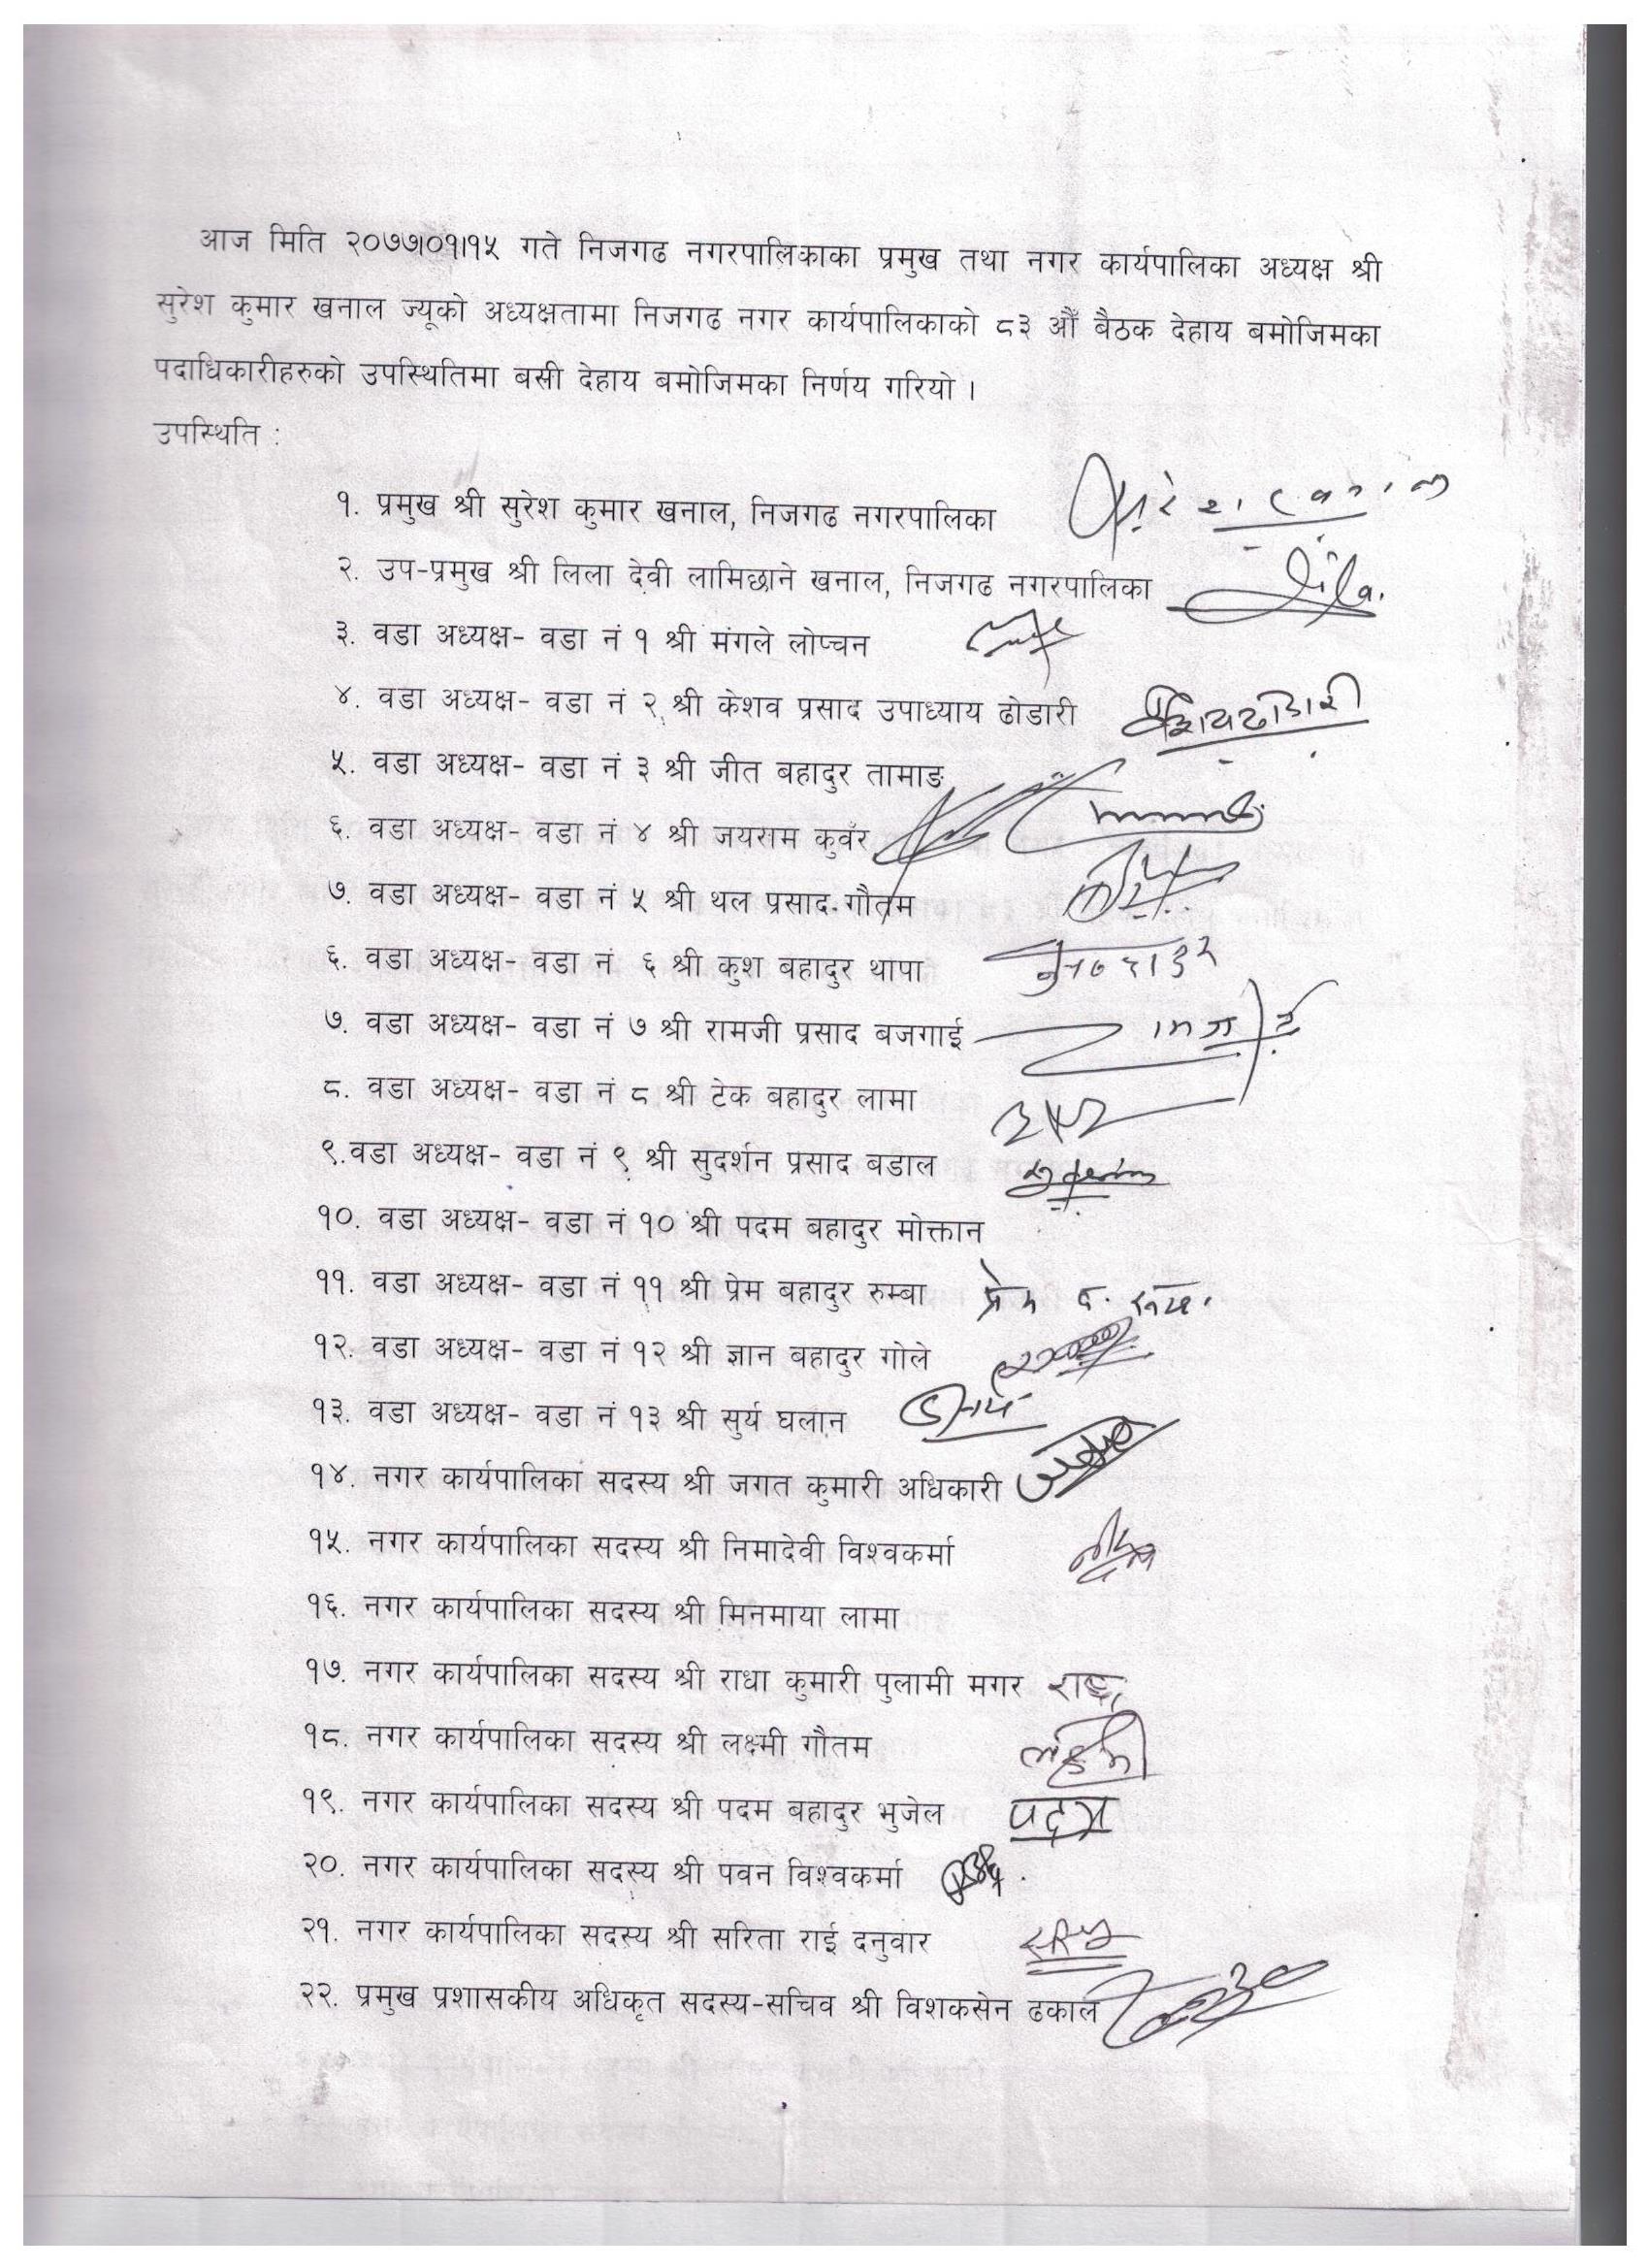 आज मिति २०७७।०१।१५ गते निजगढ नगरपालिकाका प्रमुख तथा नगर कार्यपालिका अध्यक्ष श्री
सुरेश कुमार खनाल ज्यूको अध्यक्षतामा निजगढ नगर कार्यपालिकाको ८३ औँ बैठक देहाय बमोजिमका
पदाधिकारीहरुको उपस्थितिमा बसी देहाय बमोजिमका निर्णय गरियो ।
उपस्थिति :
१. प्रमुख श्री सुरेश कुमार खनाल, निजगढ नगरपालिका
२. उप-प्रमुख श्री लिला देवी लामिछाने खनाल, निजगढ नगरपालिका Lila.
३. वडा अध्यक्ष- वडा नं १ श्री मंगले लोप्चन
४. वडा अध्यक्ष- वडा नं २ श्री केशव प्रसाद उपाध्याय ढोडारी
५. वडा अध्यक्ष- वडा नं ३ श्री जीत बहादुर तामाङ
६. वडा अध्यक्ष- वडा नं ४ श्री जयराम कुवँर
७. वडा अध्यक्ष- वडा नं ५ श्री थल प्रसाद गौतम
६. वडा अध्यक्ष- वडा नं ६ श्री कुश बहादुर थापा
७. वडा अध्यक्ष- वडा नं ७ श्री रामजी प्रसाद बजगाई
८. वडा अध्यक्ष- वडा नं ८ श्री टेक बहादुर लामा
९.वडा अध्यक्ष- वडा नं ९ श्री सुदर्शन प्रसाद बडाल
१०. वडा अध्यक्ष- वडा नं १० श्री पदम बहादुर मोक्तान
११. वडा अध्यक्ष- वडा नं ११ श्री प्रेम बहादुर रुम्बा प्रेम ब.
१२. वडा अध्यक्ष- वडा नं १२ श्री ज्ञान बहादुर गोले
१३. वडा अध्यक्ष- वडा नं १३ श्री सुर्य घलान
१४. नगर कार्यपालिका सदस्य श्री जगत कुमारी अधिकारी
१५. नगर कार्यपालिका सदस्य श्री निमादेवी विश्वकर्मा
१६. नगर कार्यपालिका सदस्य श्री मिनमाया लामा
१७. नगर कार्यपालिका सदस्य श्री राधा कुमारी पुलामी मगर
१८. नगर कार्यपालिका सदस्य श्री लक्ष्मी गौतम
१९. नगर कार्यपालिका सदस्य श्री पदम बहादुर भुजेल पदम
२०. नगर कार्यपालिका सदस्य श्री पवन विश्वकर्मा
२१. नगर कार्यपालिका सदस्य श्री सरिता राई दनुवार
२२. प्रमुख प्रशासकीय अधिकृत सदस्य-सचिव श्री विशकसेन ढकाल